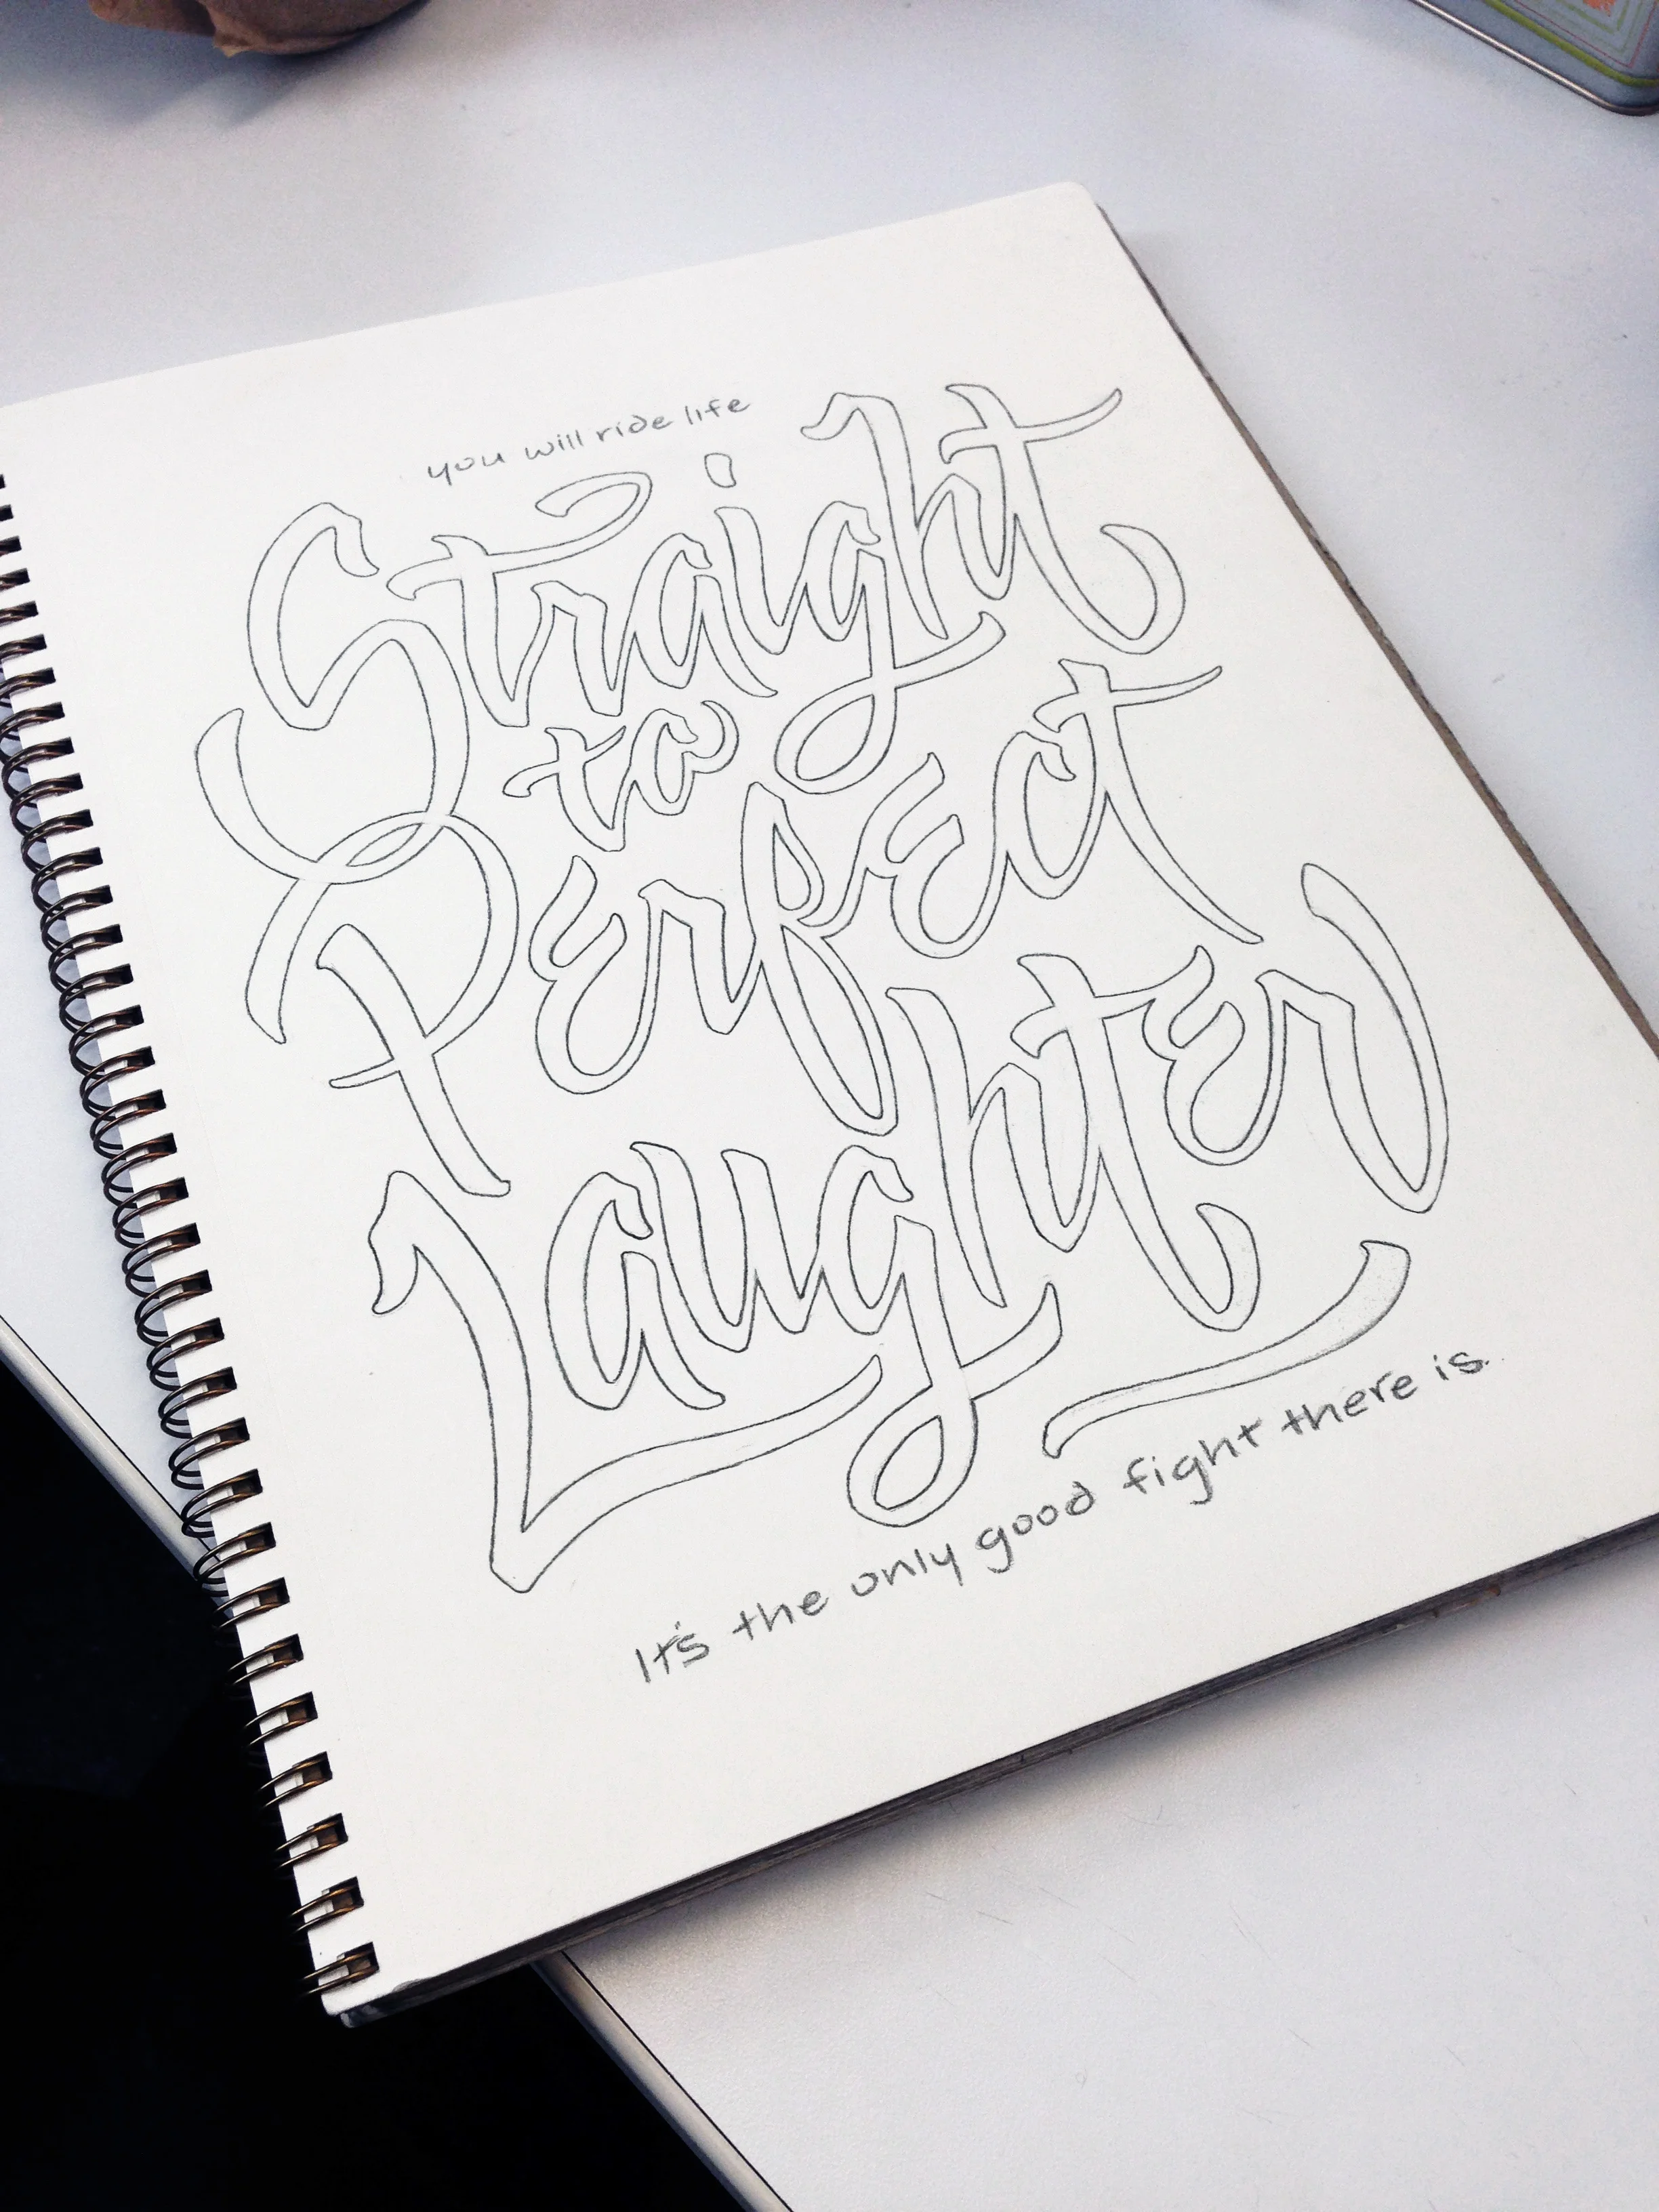 you will ride life
Straight
to
Perfect
Laughter
It's the only good fight there is.